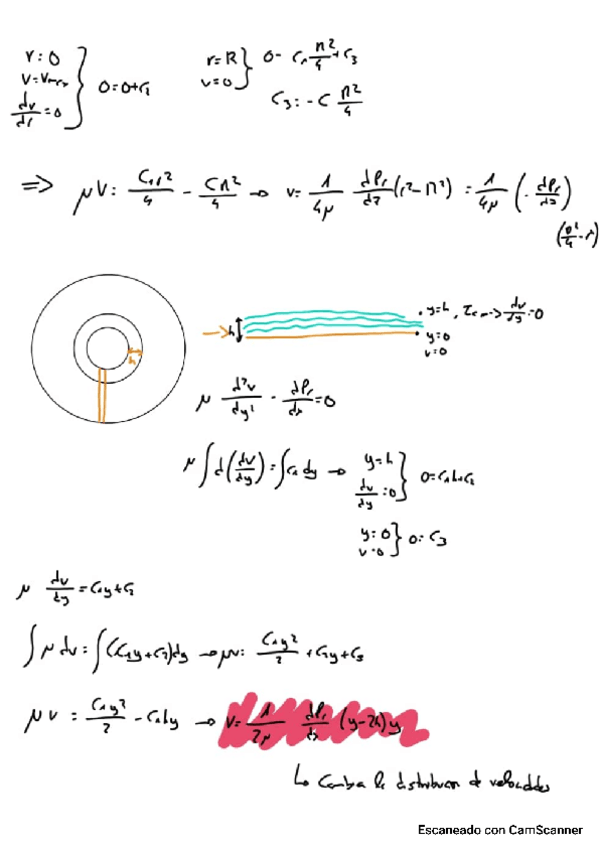 r=0
v=vmax
dv/dr=0 } 0=0+C₂
r=R
v=0 } 0= C₁ R²/4 + C₃
C₃=-C R²/4
=> μv= C₁r²/4 - CR²/4 → v= 1/4μ dPr/dz (r²-R²) = 1/4μ (-dPr/dz)
h
→ h
y=h, → dv/dy=0
y=0
v=0
μ d²v/dy² - dPr/dx =0
μ∫d(dv/dy)=∫C₁dy → y=h
dv/dy=0 } 0=C₁h+C₂
y=0
v=0 } 0=C₃
μ dv/dy = C₁y+C₂
∫μdv=∫(C₁y+C₂)dy → μv= C₁y²/2 + C₂y+C₃
μv = C₁y²/2 - C₁hy → v= 1/2μ dPr/dx (y-2h)y
↳ Cambia la distribucion de velocidades
Escaneado con CamScanner